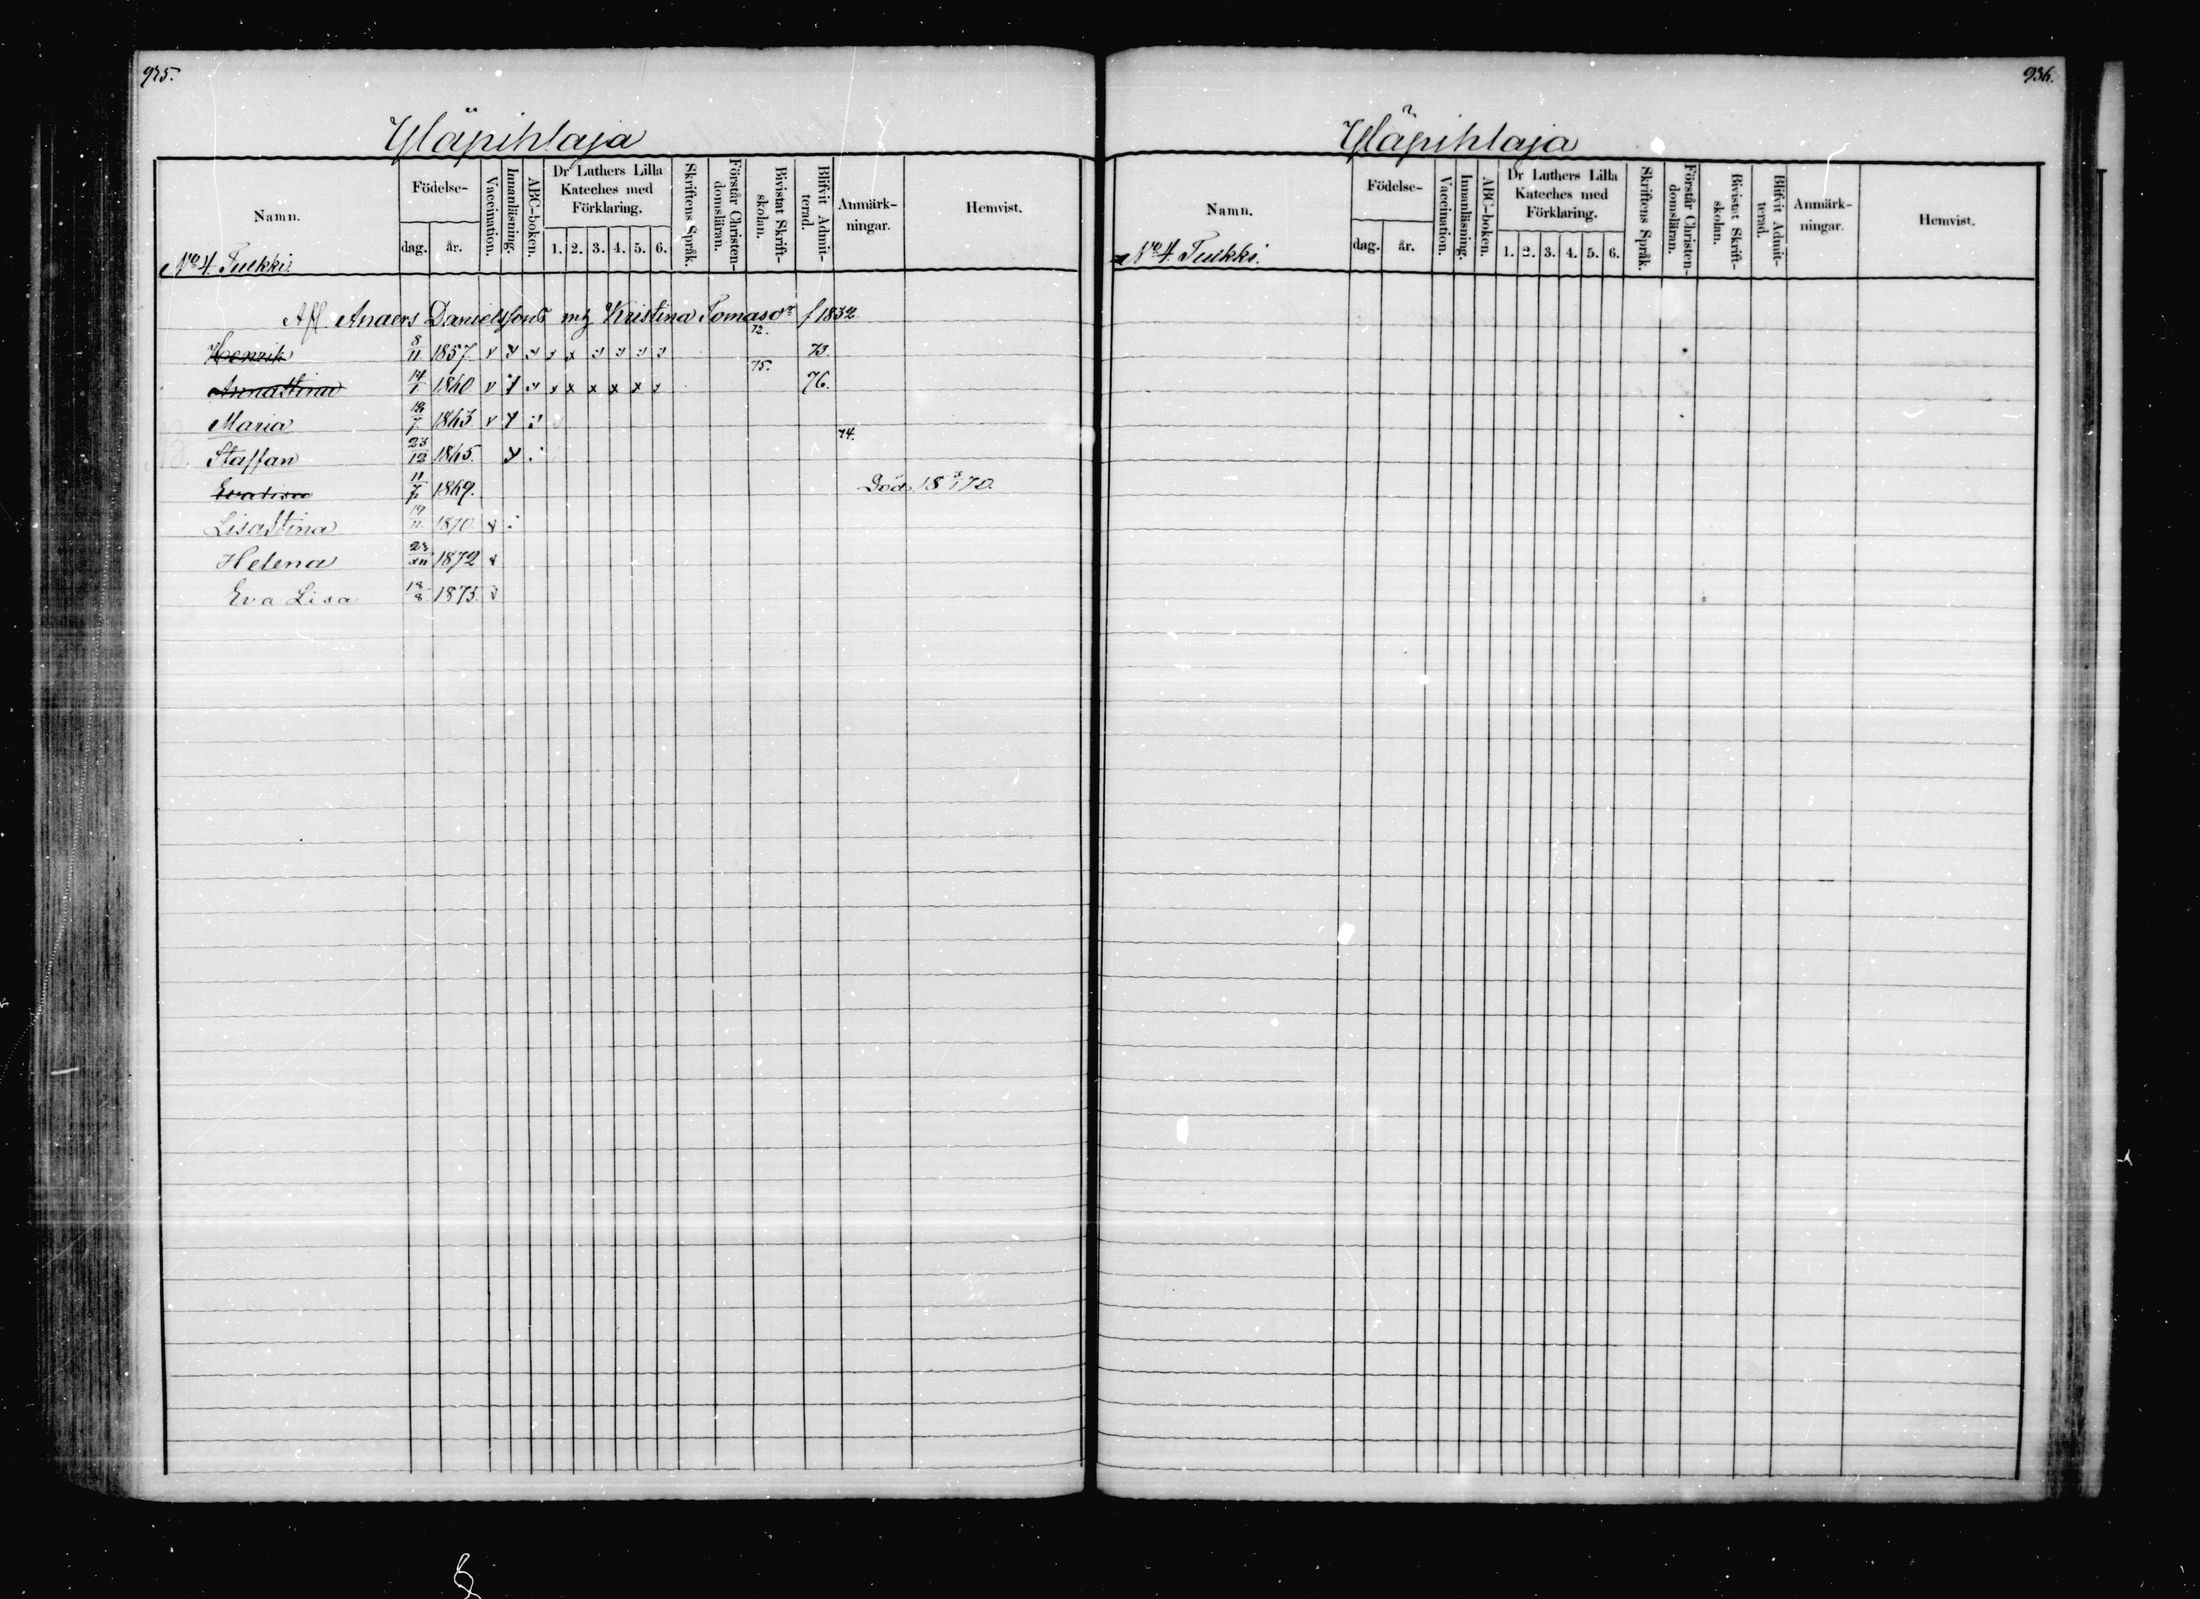 935.
Yläpihlaja
Namn.
Födelse-
dag. år.
Vaccination.
Innanläsning.
ABC-boken.
Dr Luthers Lilla
Kateches med
Förklaring.
1. 2. 3. 4. 5. 6.
Skriftens Språk.
Förstår Christen-
domsläran.
Bivistat Skrift-
skolan.
Blifvit Admit-
terad.
Anmärk-
ningar.
Hemvist.
No 4 Tulkki.
Afl Anders Danielsson mh Kristina Tomasdr f 1832.
Henrik 8/11 1857. v x x x x x x x x 72. 73.
Annastina 14/1 1860 v x x x x x x x x 75. 76.
Maria 18/7 1863. v x
Staffan 23/12 1865. x 74.
Evalisa 11/7 1869. Död 18 3/1 70.
Lisastina 19/11 1870. v
Helena 23/XII 1872 v
Eva Lisa 18/8 1875. v
936.
Yläpihlaja
Namn.
Födelse-
dag. år.
Vaccination.
Innanläsning.
ABC-boken.
Dr Luthers Lilla
Kateches med
Förklaring.
1. 2. 3. 4. 5. 6.
Skriftens Språk.
Förstår Christen-
domsläran.
Bivistat Skrift-
skolan.
Blifvit Admit-
terad.
Anmärk-
ningar.
Hemvist.
No 4 Tulkki.